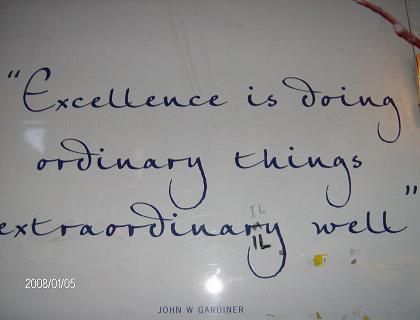 "Excellence is doing
ordinary things
extraordinary well"
IL
IL
2008/01/05
JOHN W GARDINER